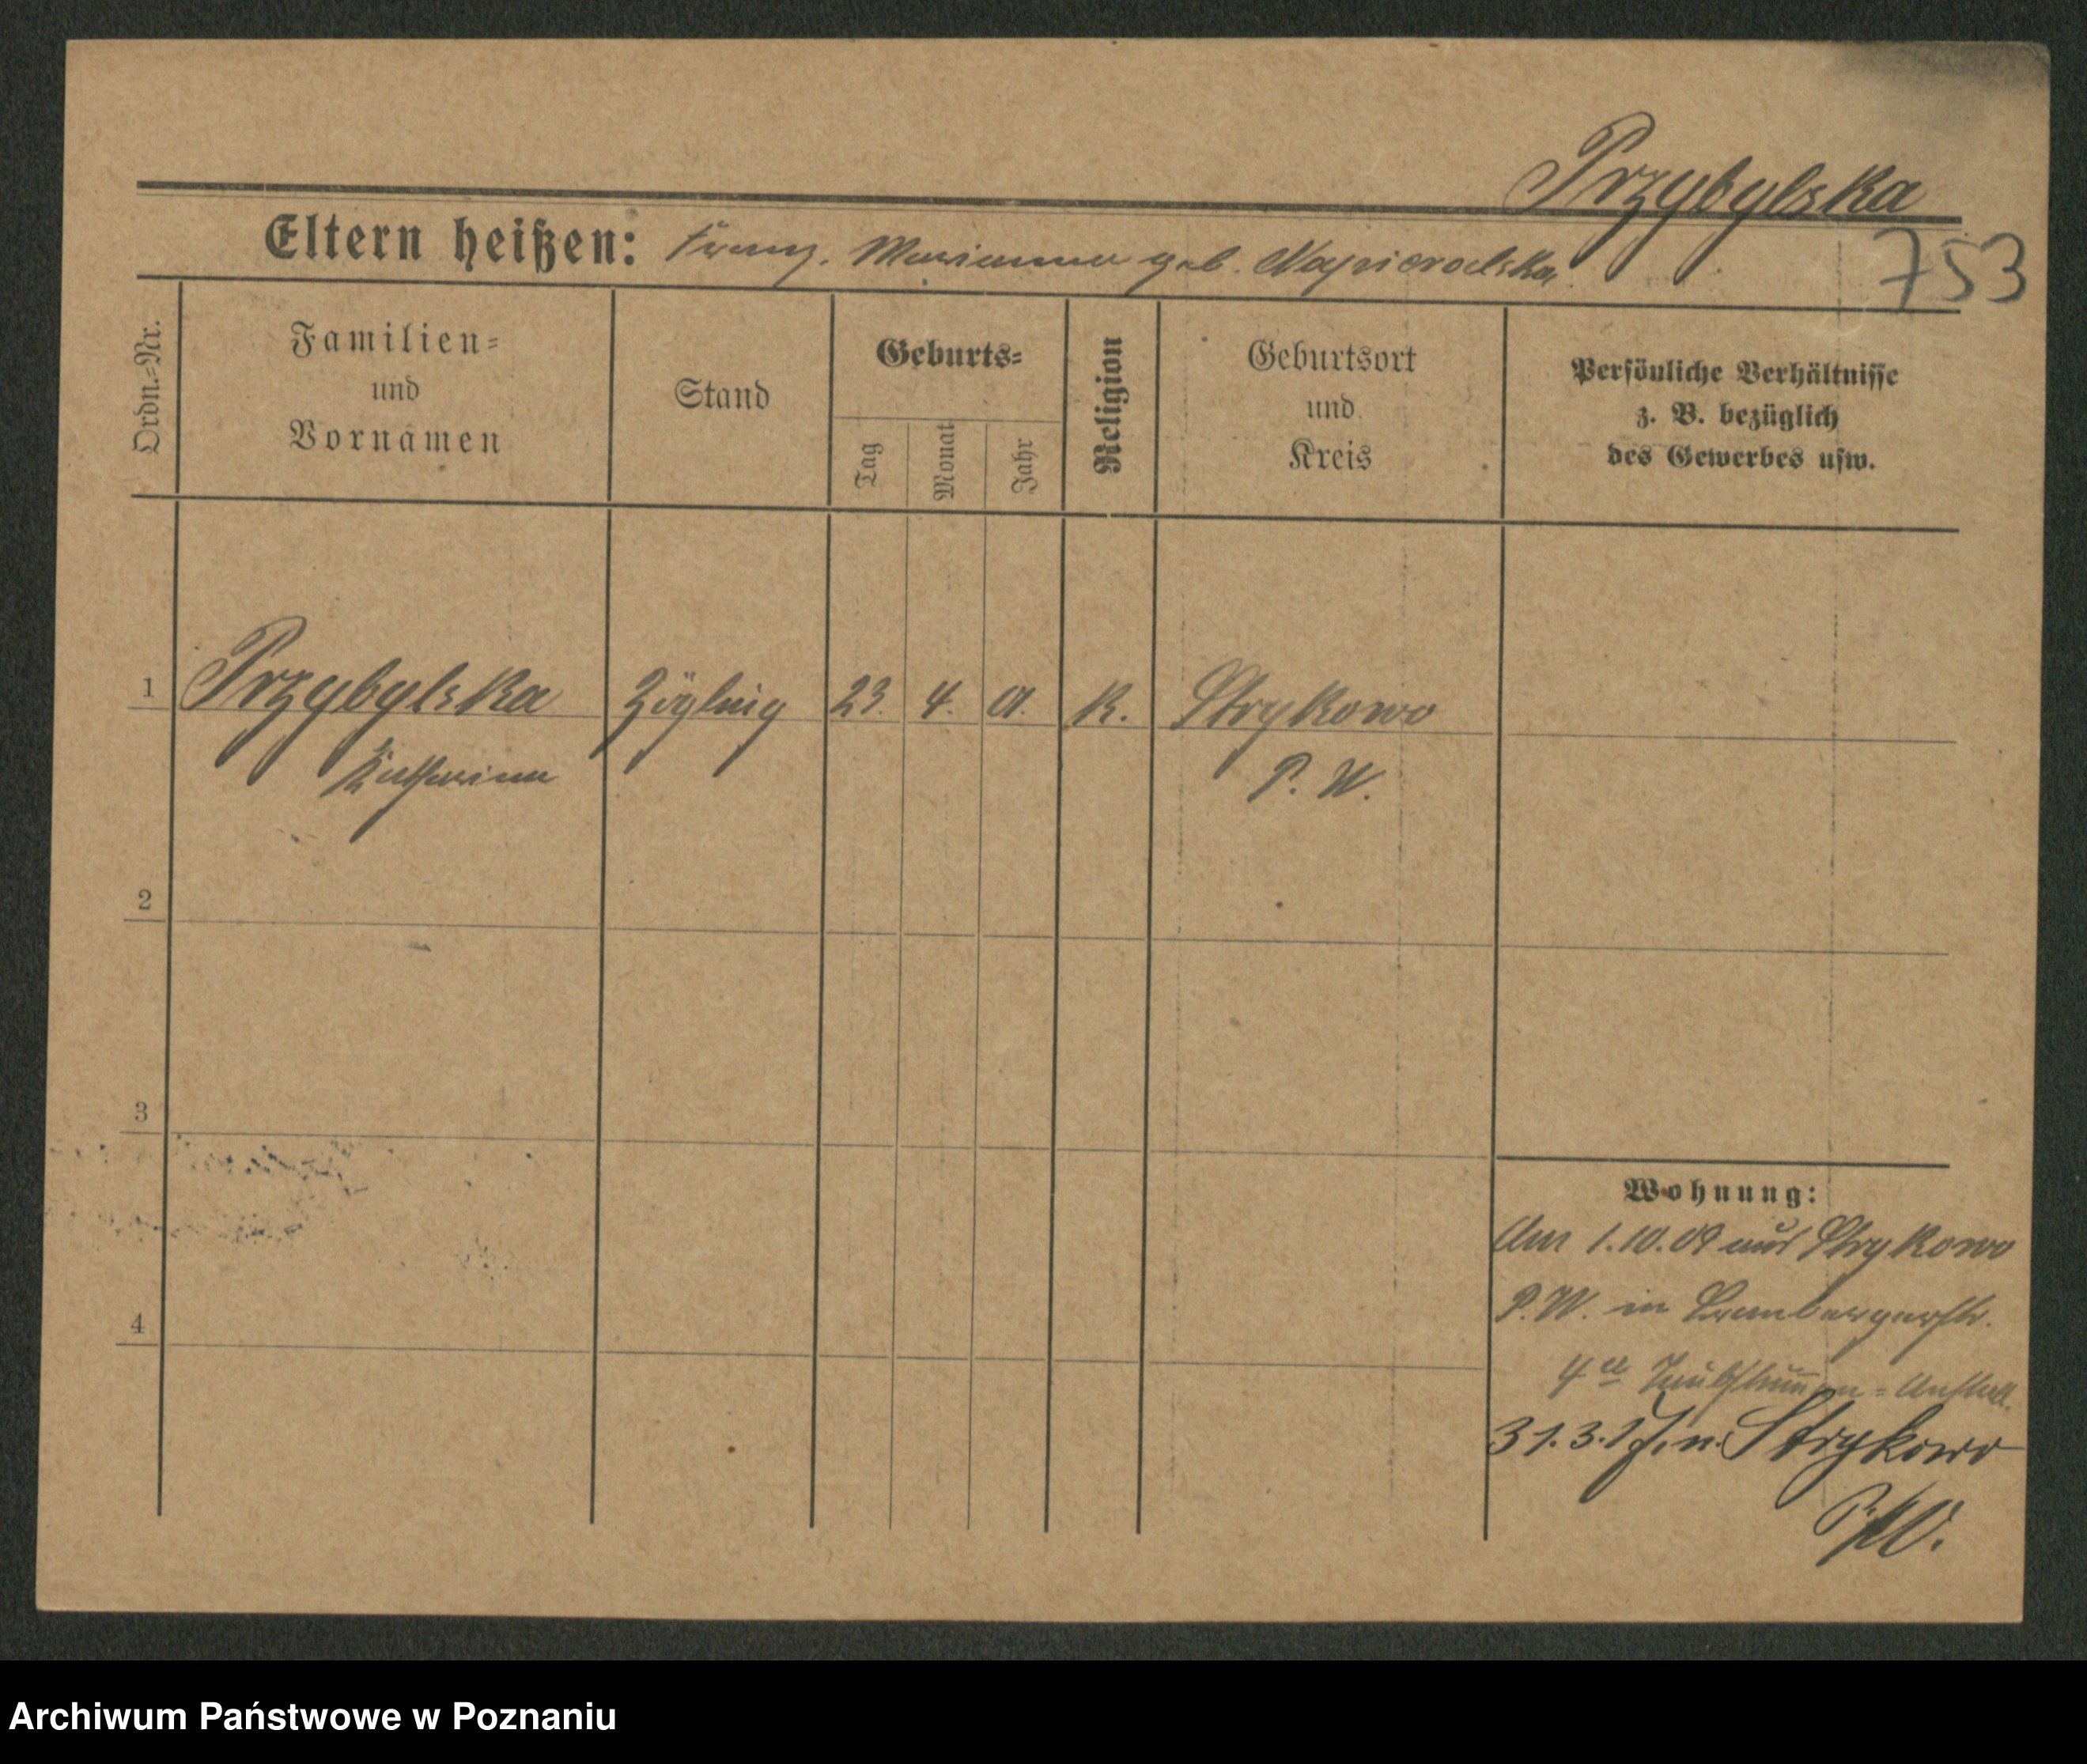 Przybylska
Eltern heißen: Franz, Marianna geb. Napieralska
753
Ordn.=Nr.
Familien=
und
Vornamen
Stand
Geburts=
Tag
Monat
Jahr
Religion
Geburtsort
und
Kreis
Persönliche Verhältnisse
z. B. bezüglich
des Gewerbes usw.
1 Przybylska Zögling 23. 4. 01. K. Strykowo
Katharina P. W.
2
3
4
Wohnung:
Am 1.10.09 aus Strykowo
P. W. in Brombergerstr.
4 Taubstummen=Anstalt.
31.3.17. n. Strykowo
P. W.
Archiwum Państwowe w Poznaniu